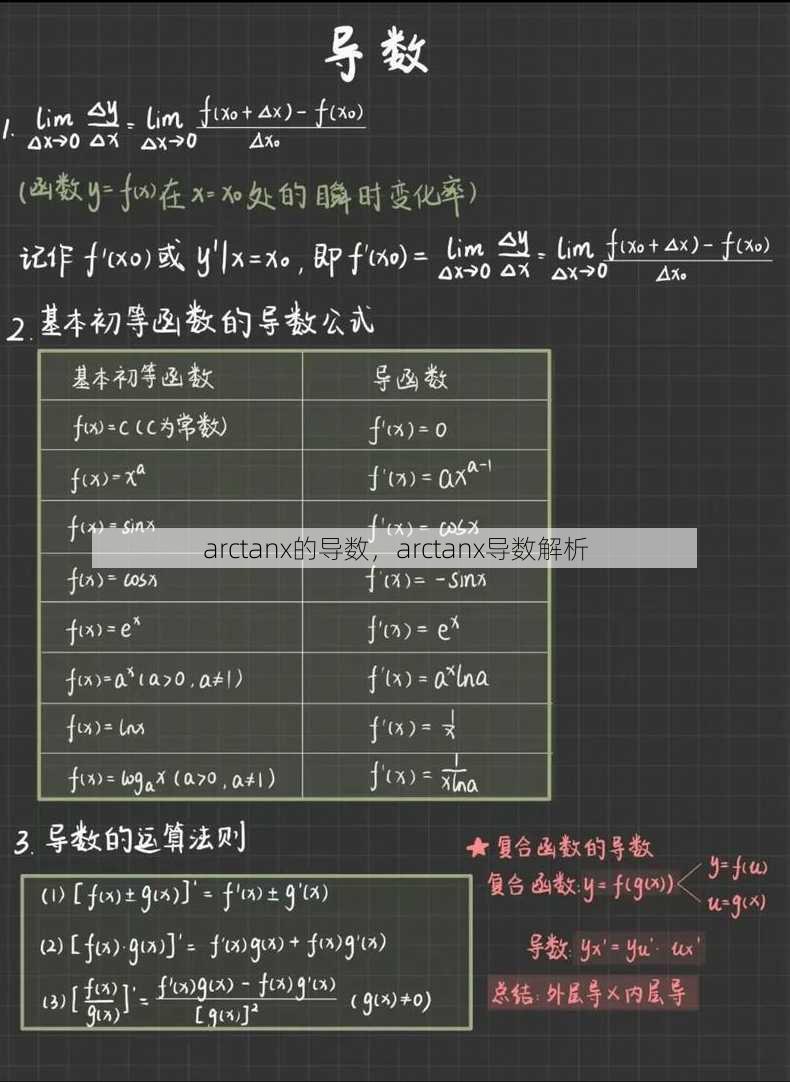 导数
1. lim Δx→0 Δy/Δx = lim Δx→0 f(x₀+Δx)-f(x₀)/Δx₀
(函数y=f(x)在x=x₀处的瞬时变化率)
记作f'(x₀)或y'|x=x₀,即f'(x₀)= lim Δx→0 Δy/Δx = lim Δx→0 f(x₀+Δx)-f(x₀)/Δx₀
2.基本初等函数的导数公式
基本初等函数 导函数
f(x)=C(C为常数) f'(x)=0
f(x)=xᵃ f'(x)=axᵃ⁻¹
f(x)=sinx f'(x)=cosx
arctanx的导数，arctanx导数解析
f(x)=cosx f'(x)=-sinx
f(x)=eˣ f'(x)=eˣ
f(x)=aˣ(a>0,a≠1) f'(x)=aˣlna
f(x)=lnx f'(x)=1/x
f(x)=logₐx(a>0,a≠1) f'(x)=1/xlna
3.导数的运算法则
(1)[f(x)±g(x)]'=f'(x)±g'(x)
(2)[f(x)·g(x)]'=f'(x)g(x)+f(x)g'(x)
(3)[f(x)/g(x)]'=f'(x)g(x)-f(x)g'(x)/[g(x)]² (g(x)≠0)
★复合函数的导数
复合函数:y=f(g(x)) y=f(u)
u=g(x)
导数:yx'=yu'·ux'
总结:外层导×内层导